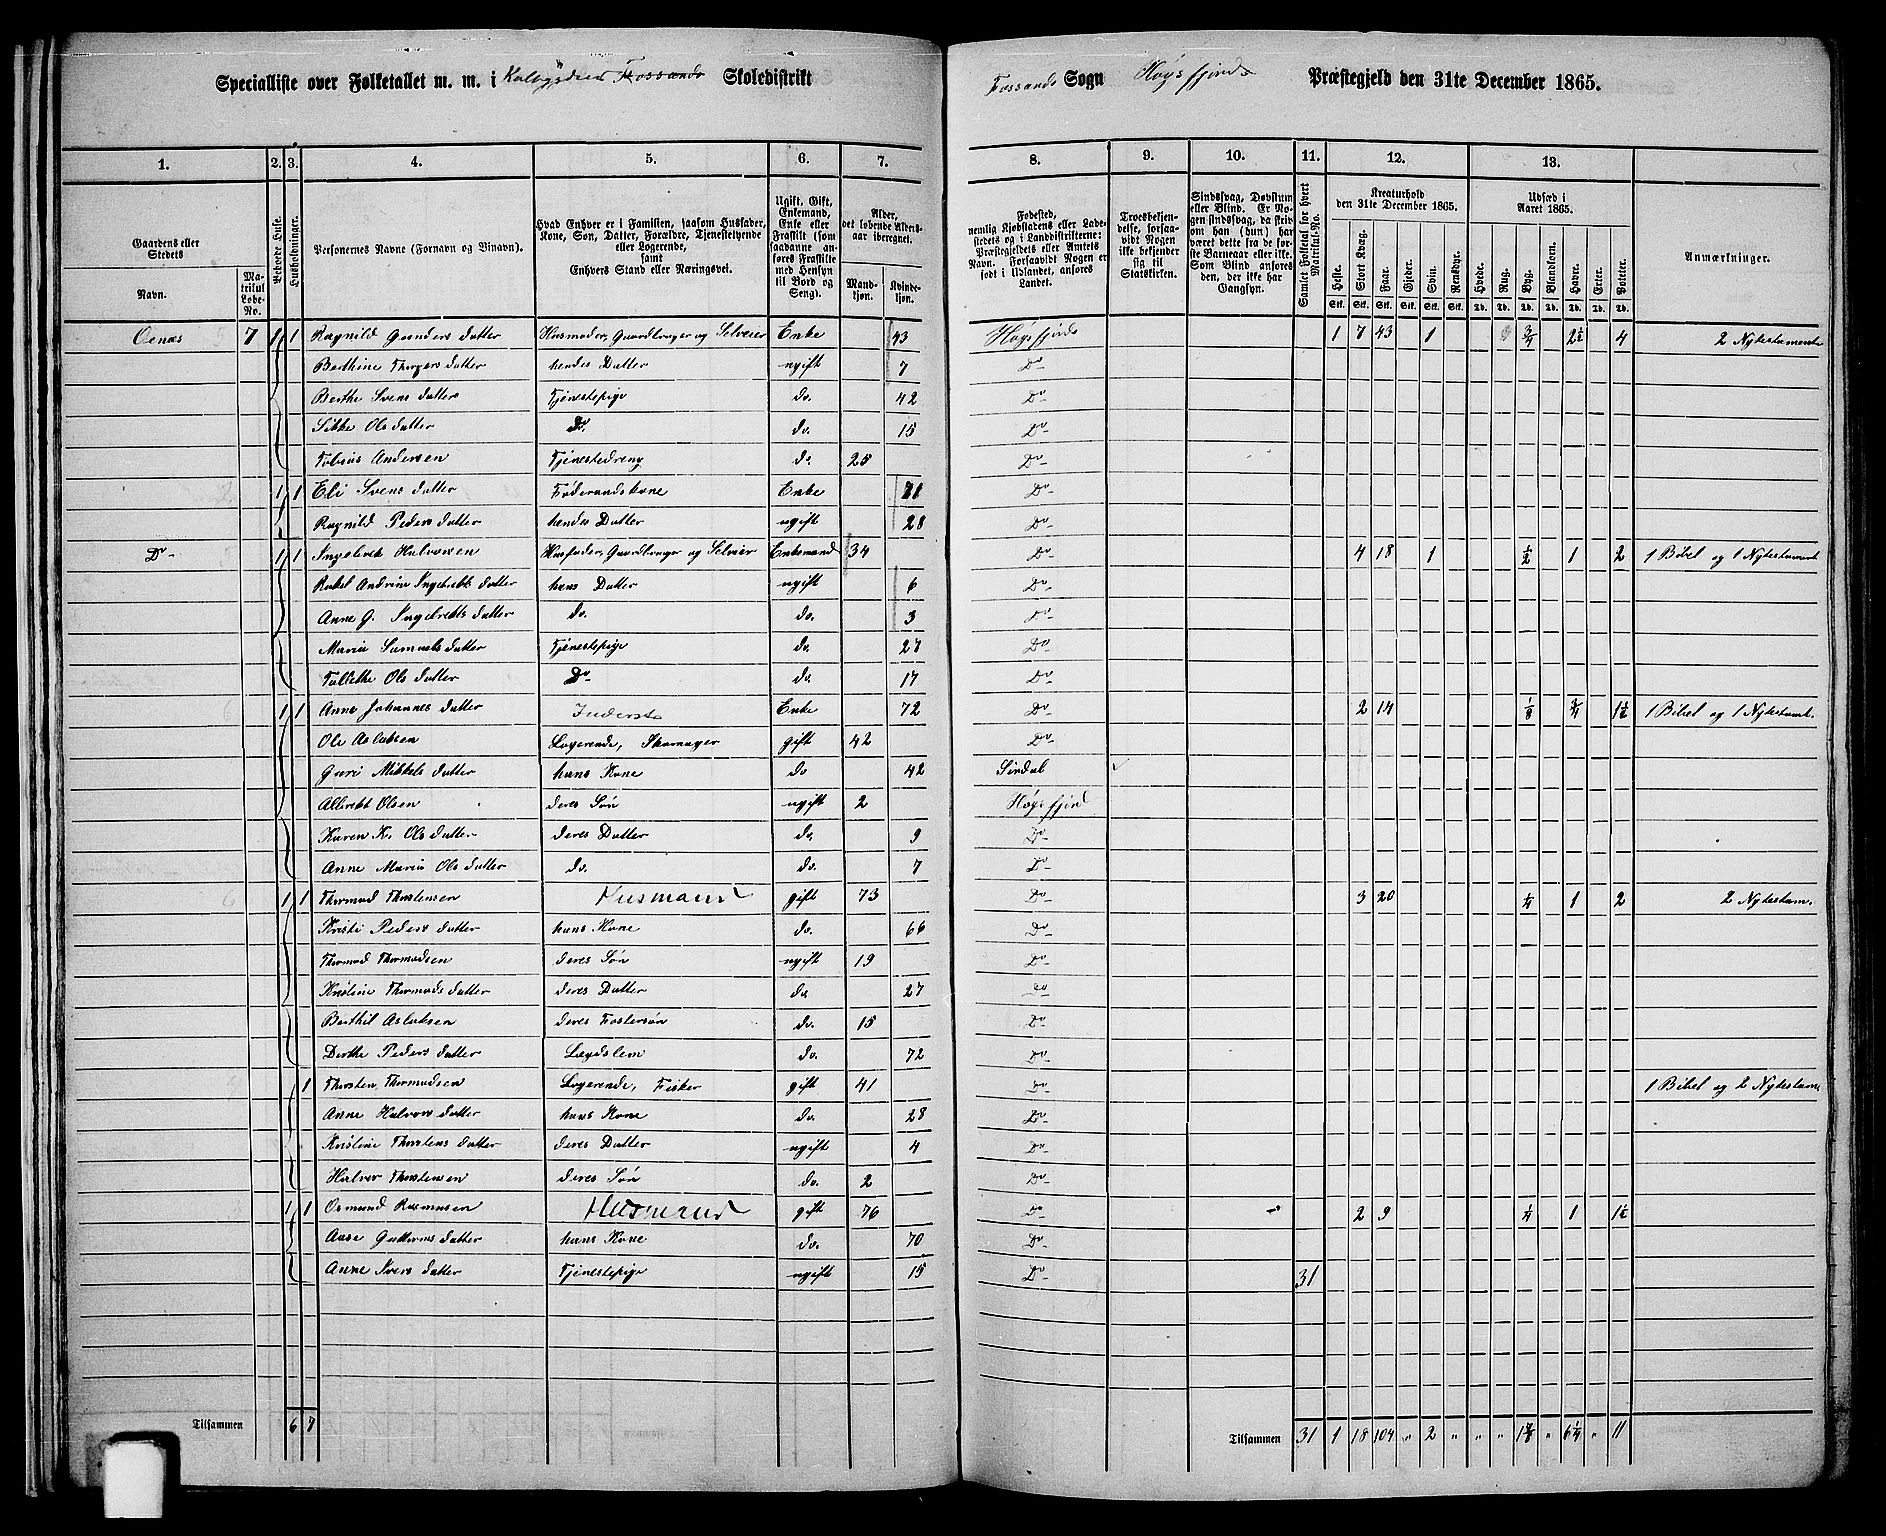 Specialliste over Folketallet m. m. i Kalvigsdeer Fossands Skoledistrikt
Fossands Sogn Høgsfjords Præstegjeld den 31te December 1865.
1. 2. 3. 4. 5. 6. 7. 8. 9. 10. 11. 12. 13.
Gaardens eller Stedets Navn.
Matrikul Løbe-No.
Beboede Huse.
Husholdninger.
Personernes Navne (Fornavn og Binavn).
Hvad Enhver er i Familien, saasom Husfader, Kone, Søn, Datter, Forældre, Tjenestetyende eller Logerende, samt Enhvers Stand eller Næringsvei.
Ugift, Gift, Enkemand, Enke eller Fraskilt (som saadanne anføres Fraskilte med Hensyn til Bord og Seng).
Alder, det løbende Aldersaar iberegnet.
Mandkjøn. Kvindekjøn.
Fødested, nemlig Kjøbstadens eller Ladestedets og i Landdistrikterne: Præstegjeldets eller Amtets Navn. Forsaavidt Nogen er født i Udlandet, anføres Landet.
Troesbekjendelse, forsaavidt Nogen ikke bekjender sig til Statskirken.
Sindssvag, Døvstum eller Blind. Er Nogen sindssvag, da skrives om han (hun) har været dette fra de første Barneaar eller ikke. Som Blind anføres den, der ikke har Gangsyn.
Samlet Folketal for hvert Matrikul-No.
Kreaturhold den 31te December 1865.
Heste. Stort Kvæg. Faar. Gjeder. Svin. Rensdyr.
Udsæd i Aaret 1865.
Hvede. Rug. Byg. Blandkorn. Havre. Erter. Poteter.
Anmærkninger.
Oenæs 7 1 1 Ragnild Gunders datter Husmoder, Gaardbruger og Selveier Enke 43 Høgsfjords 1 7 43 1 3/4 2 1/2 4 2 Nytestamente
Berthine Thorgers datter hendes Datter ugift 7 Do
Berthe Svens datter Tjenestepige do. 42 Do
Sikke Ols datter Do. do. 15 Do
Tobias Andersen Tjenestedreng do 25 Do
1 1 Eli Svens datter Føderaadskone Enke 71 Do
Ragnild Peders datter hendes Datter ugift 28 Do
Do 1 1 Ingebret Halvorsen Husfader, Gaardbruger og Selveier Enkemand 34 Do 4 18 1 1/2 1 2 1 Bibel og 1 Nytestament
Rakel Andrine Ingebrets datter hans Datter ugift 6 Do
Anne G. Ingebrets datter do. do. 3 Do
Maria Samuels datter Tjenestepige do. 27 Do
Tollethe Ols datter Do do. 17 Do
1 1 Anne Johannes datter Inderst Enke 72 Do 2 14 1/8 3/4 1 1/2 1 Bibel og 1 Nytestamt.
Ole Aslaksen Logerende, Skomager gift 42 Do
Guri Mikkels datter hans Kone do 42 Sirdal
Albrekt Olsen deres Søn ugift 2 Høgsfjord
Karen K. Ols datter deres Datter do. 9 Do
Anne Maria Ols datter do. do. 7 Do
1 1 Thormod Thorstensen Husmand gift 73 Do 3 20 1/4 1 2 2 Nytestam.
Kristi Peders datter hans Kone do. 66 Do
Thormod Thormodsen deres Søn ugift 19 Do
Kristine Thormods datter deres Datter do 27 Do
Berthil Aslaksen deres Fostersøn do. 15 Do
Dorthe Peders datter Lægdslem do. 72 Do
1 Thorsten Thormodsen Logerende, Fisker gift 41 Do 1 Bibel og 2 Nytestame
Anne Halvors datter hans Kone do. 28 Do
Kristine Thorstens datter deres Datter ugift 4 Do
Halvor Thorstensen deres Søn do. 2 Do
1 1 Osmund Rasmusen Husmand gift 76 Do 2 9 1/4 1 1 1/2
Anne Guttorms datter hans Kone do. 70 Do
Anne Svens datter Tjenestepige ugift 15 Do 31
Tilsammen 6 7
Tilsammen 31 1 18 104 „ 2 „ „ „ 1 7/8 „ 6 1/4 „ 11